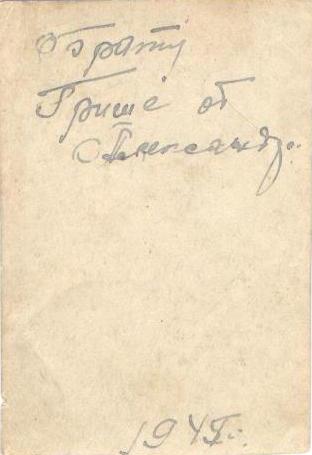 Брату
Грише от
Александра.